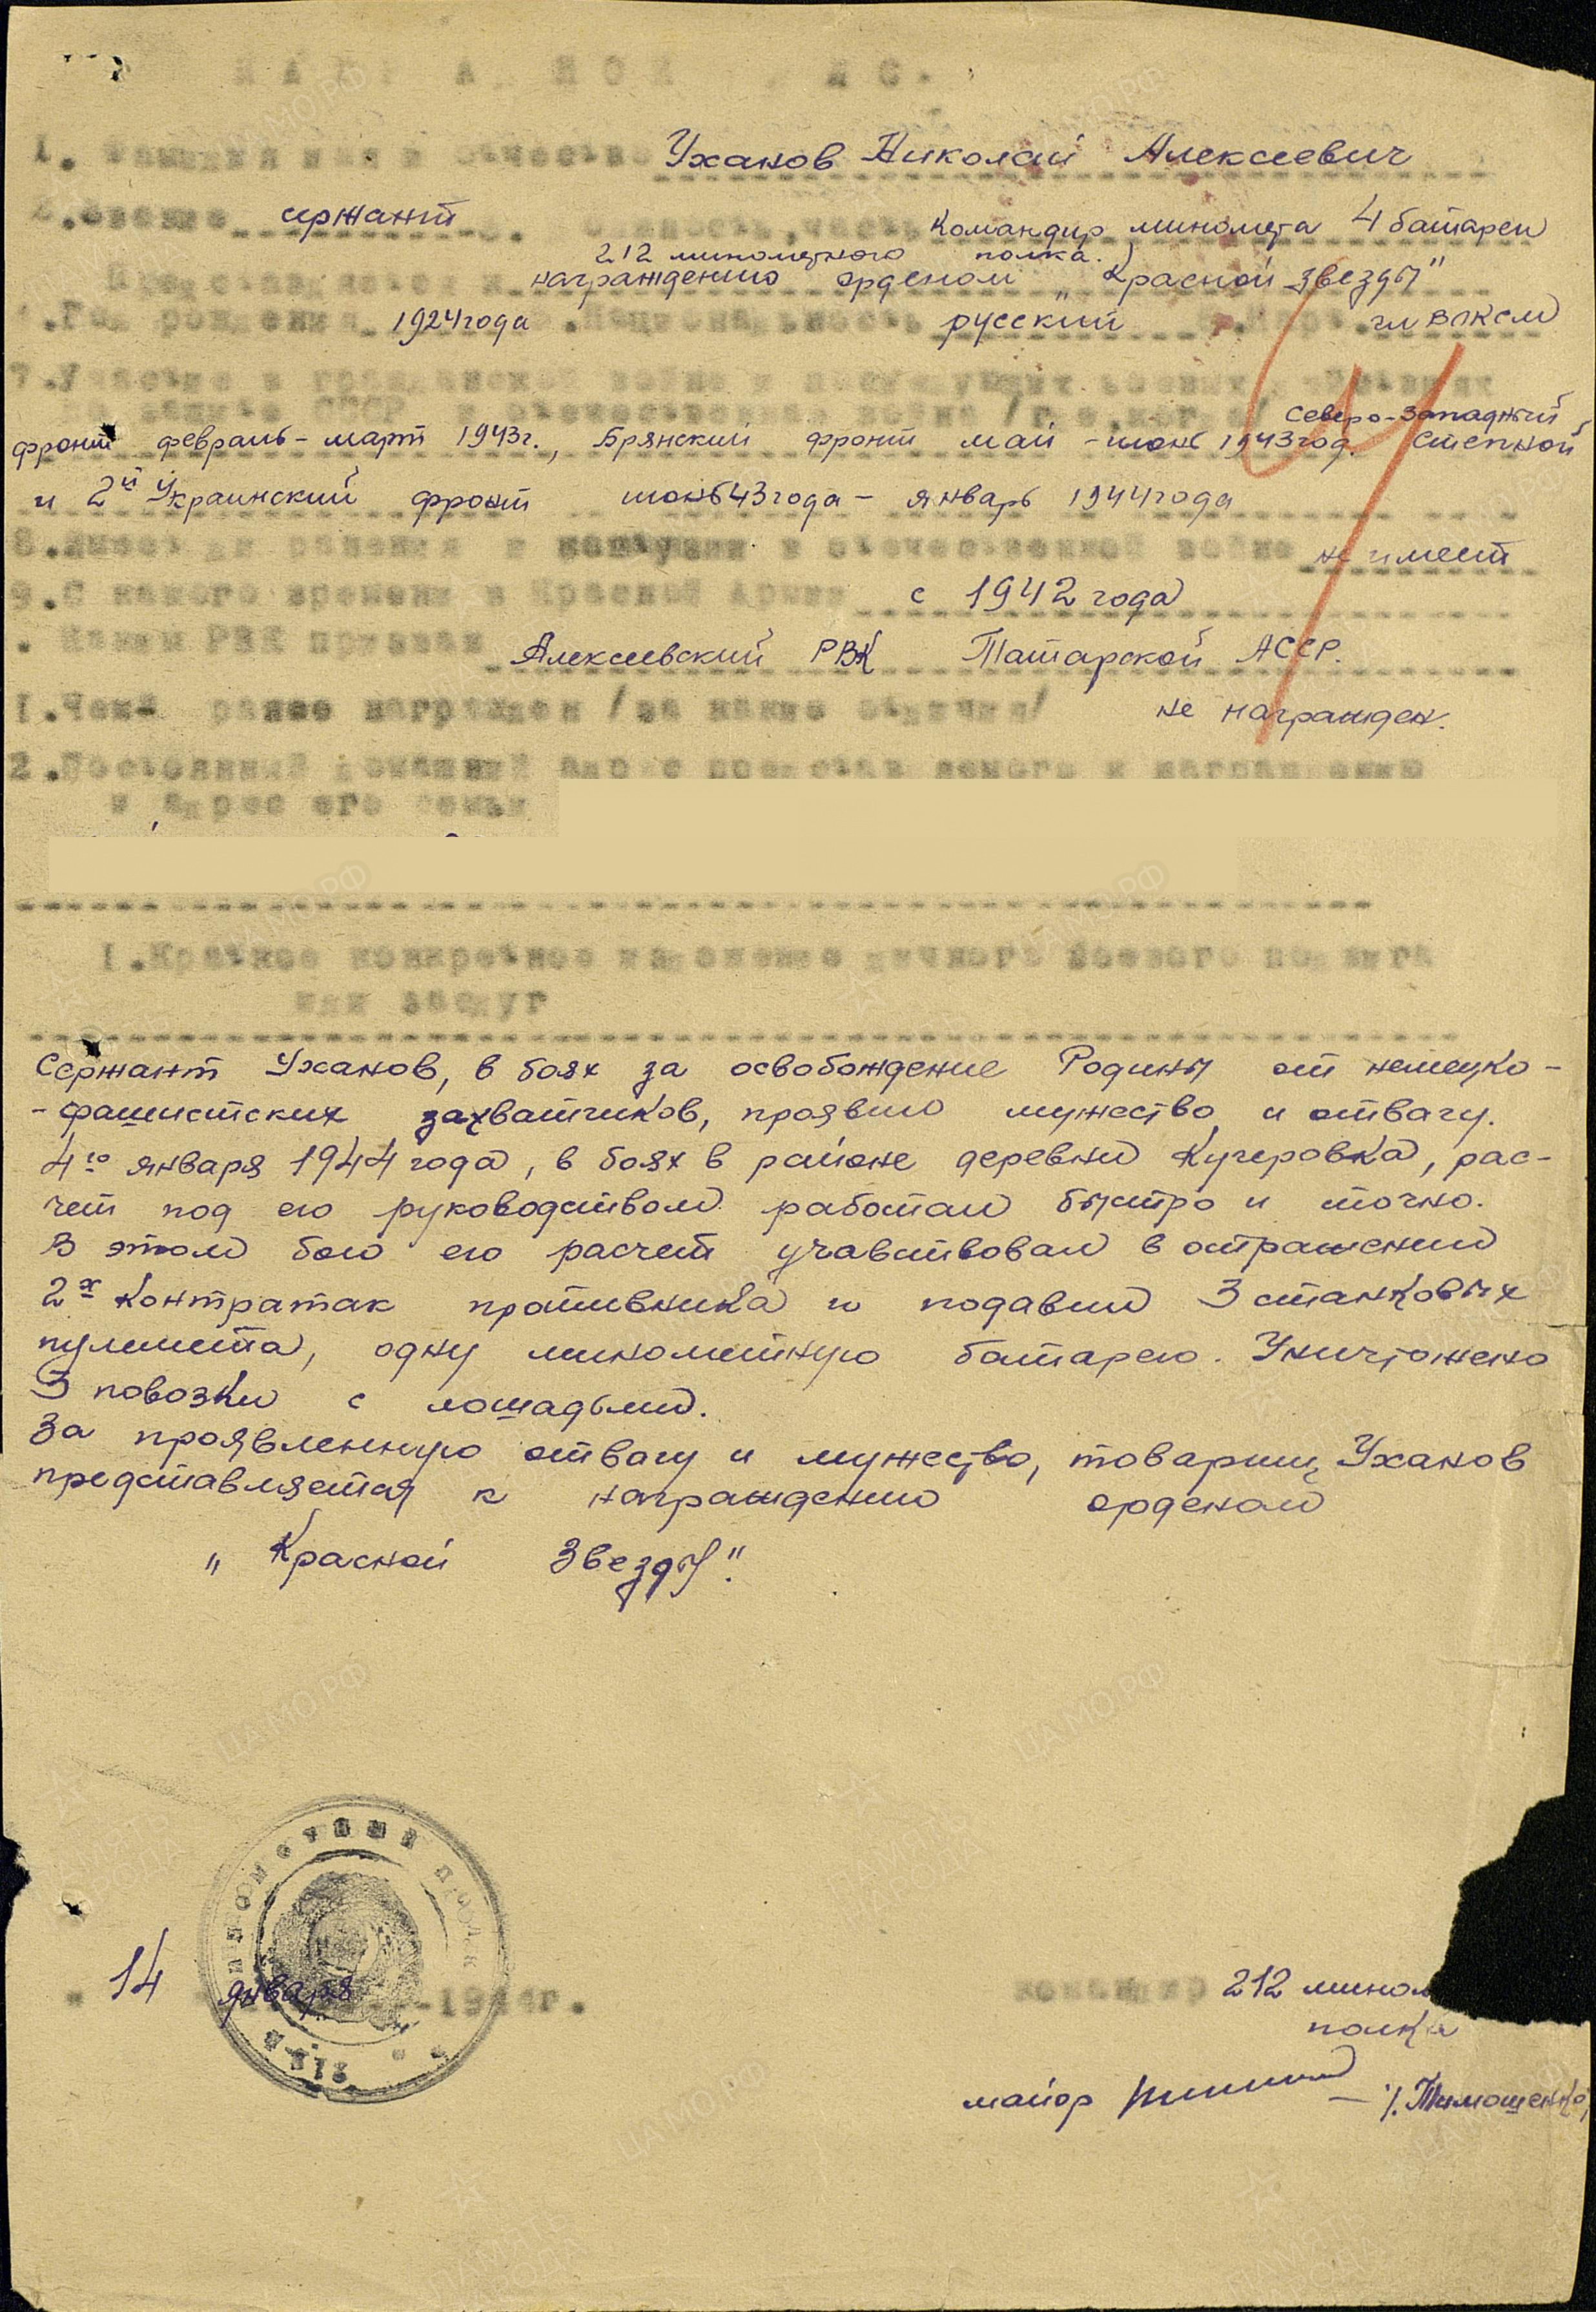 НАГРАДНОЙ ЛИСТ.
1. Фамилия имя и отчество Ужанов Николай Алексеевич
2. Звание сержант 3. Должность, часть Командир миномета 4 батареи
212 минометного полка.
Представляется к награждению орденом „Красной звезды"
4. Год рождения 1924 года 5. Национальность русский 6. Парт. чл ВЛКСМ
7. Участие в гражданской войне и последующих боевых действиях
по защите СССР и отечественной войне /где, когда/ Северо-Западный
фронт февраль - март 1943 г., Брянский фронт май - июнь 1943 год. Степной
и 2й Украинский фронт июнь 43 года - январь 1944 года
8. Имеет ли ранения и контузии в отечественной войне не имеет
9. С какого времени в Красной Армии с 1942 года
. Каким РВК призван Алексеевский РВК Татарской АССР.
1. Чем ранее награжден /за какие отличия/ не награжден.
2. Постоянный домашний адрес представляемого к награждению
и адрес его семьи
1. Краткое конкретное изложение личного боевого подвига
или заслуг
Сержант Ужанов, в боях за освобождение Родины от немецко-
-фашистских захватчиков, проявил мужество и отвагу.
4го января 1944 года, в боях в районе деревни Кучеровка, рас-
чет под его руководством работал быстро и точно.
В этом бою его расчет учавствовал в отражении
2х контратак противника и подавил 3 станковых
пулемета, одну минометную батарею. Уничтожено
3 повозки с лошадьми.
За проявленную отвагу и мужество, товарищ Ужанов
представляется к награждению орденом
„Красной Звезды".
МИНОМЕТНЫЙ ПОЛК
" 14 января 1944г.
командир 212 мином
полка
майор – /. Тимошенко/